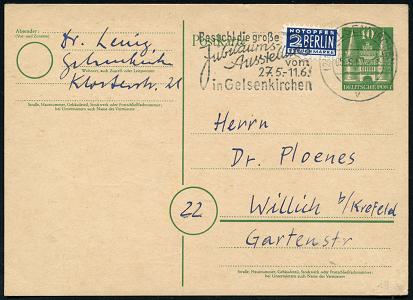 Absender:
Dr. Lenig,
Gelsenkirch
Klosterstr. 21
Straße, Hausnummer, Gebäudeteil, Stockwerk oder Postschließfachnummer;
bei Untermietern auch Name des Vermieters
Postkarte
Besucht die große
Jubiläums-
Ausstellung
vom
27.5.-11.6.
in Gelsenkirchen
NOTOPFER
2 BERLIN
STEUERMARKE
10
DEUTSCHE POST
Herrn
Dr. Ploenes
22
Willich b/Krefeld
Gartenstr
Straße, Hausnummer, Gebäudeteil, Stockwerk oder Postschließfachnummer;
bei Untermietern auch Name des Vermieters